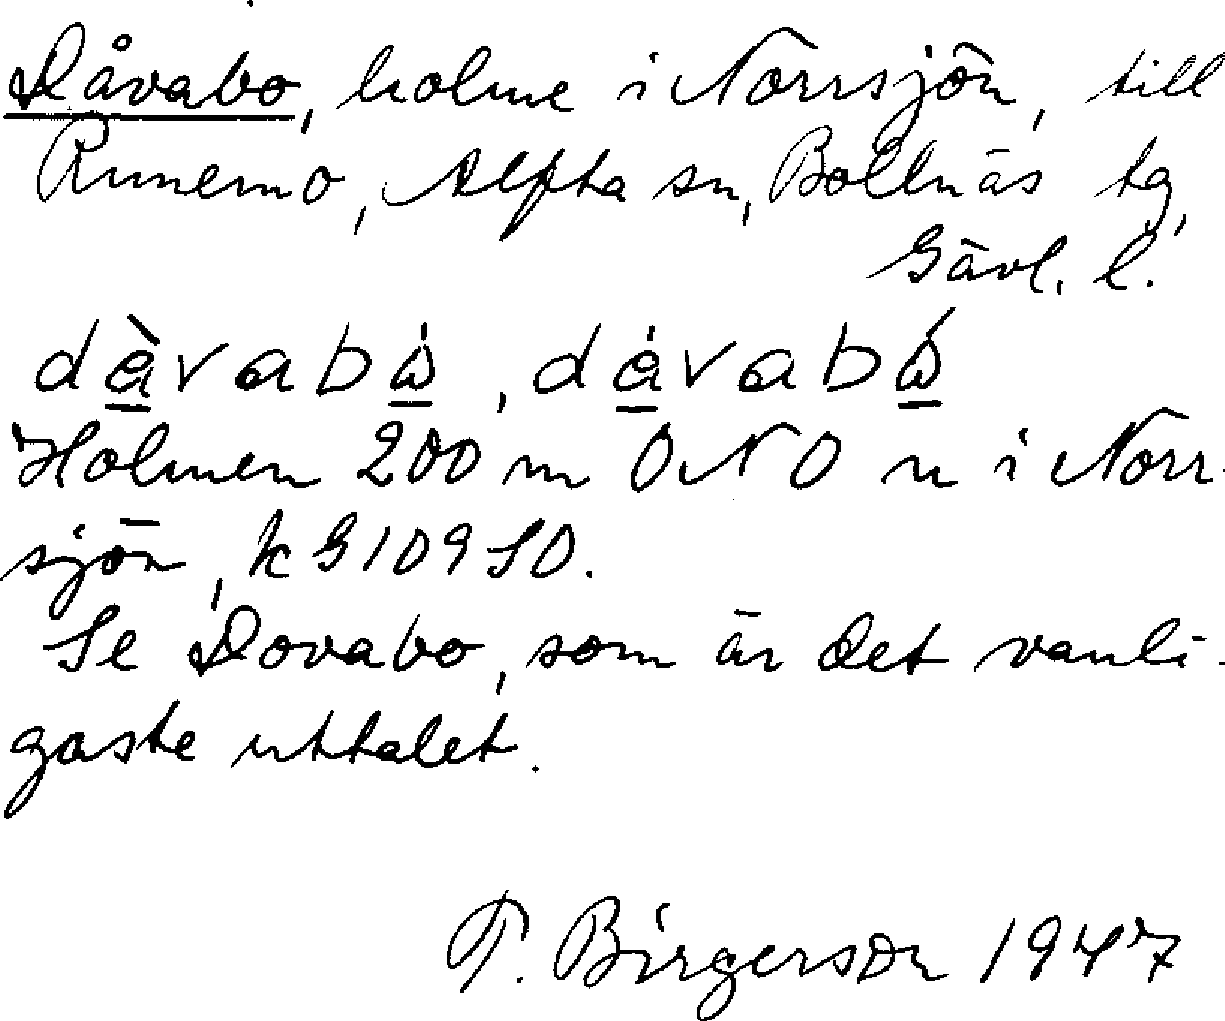 Dåvabo, holme i Norrsjön, till
Runemo, Alfta sn, Bollnäs tg,
Gävl. l.
dàvabω̇, dȧvabώ
Holmen 200 m ONO n i Norr-
sjön, k G 109 SO.
Se Dovabo, som är det vanli-
gaste uttalet.
T. Birgerson 1947